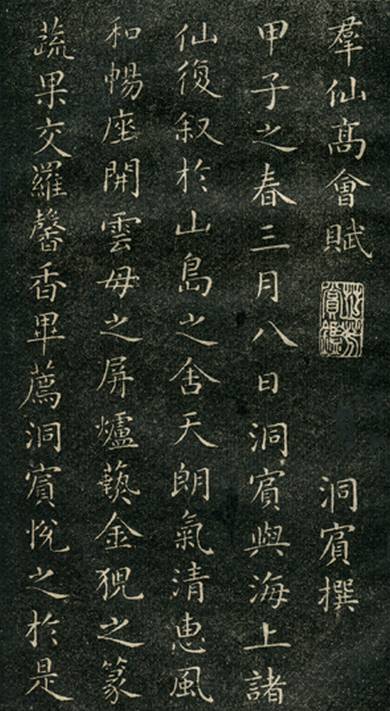 羣仙髙會賦 洞賓撰
甲子之春三月八日洞賓與海上諸
仙復叙於山島之舍天朗氣清恵風
和暢座開雲母之屏爐爇金猊之篆
蔬果交羅馨香畢薦洞賓悅之於是